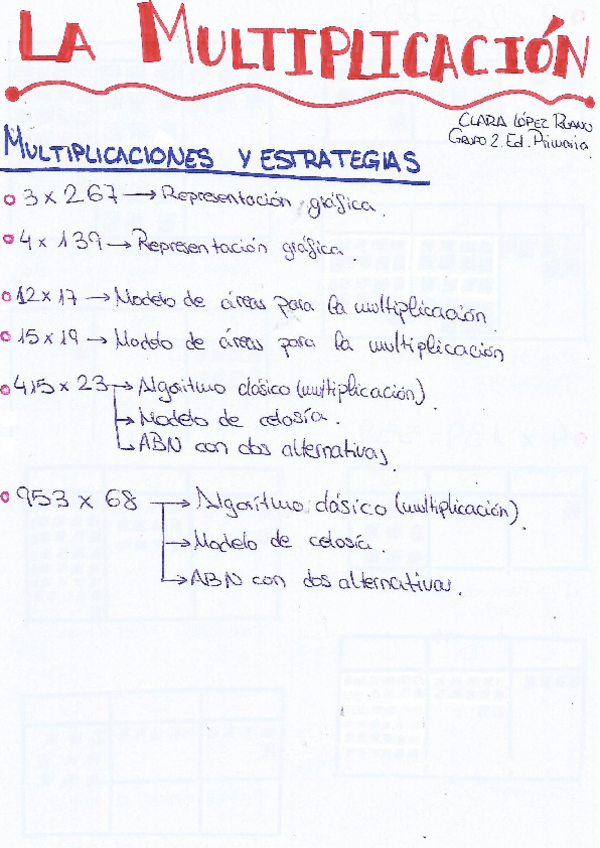 LA MULTIPLICACIÓN
CLARA LÓPEZ RUANO
GRUPO 2. Ed. Primaria.
MULTIPLICACIONES Y ESTRATEGIAS
3 x 267 → Representación gráfica.
4 x 139 → Representación gráfica.
12 x 17 → Modelo de áreas para la multiplicación
15 x 19 → Modelo de áreas para la multiplicación
415 x 23 → Algoritmo clásico (multiplicación).
→ Modelo de celosía.
→ ABN con dos alternativas.
953 x 68 → Algoritmo clásico (multiplicación).
→ Modelo de celosía.
→ ABN con dos alternativas.